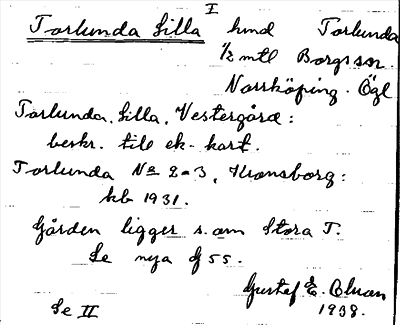 I
Torlunda Lilla hmd Torlunda
1/2 mtl Borgs sn.
Norrköping. Ögl
Torlunda, Lilla, Vestergård:
beskr. till ek-kart.
Torlunda No 2-3, Kronsborg:
hb 1931.
Gården ligger s. om Stora T.
Se nya G 55.
Gustef E.
Se II 1938.